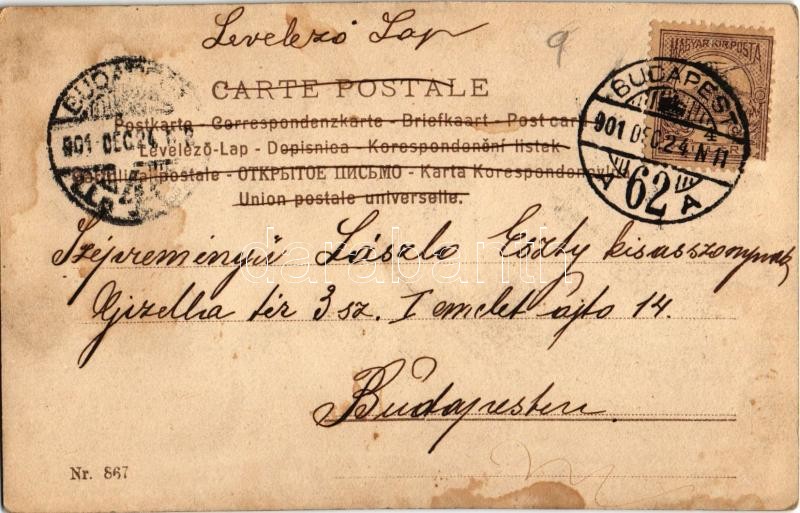 Levelező Lap
9
CARTE POSTALE
Postkarte - Correspondenzkarte - Briefkaart - Post card
Levelező-Lap - Dopisnica - Korespondenční listek
postale - ОТКРЫТОЕ ПИСЬМО - Karta Korespondencyjna
Union postale universelle.
MAGYAR KIR. POSTA
BUDAPEST
901 DEC 24 N 11
A 62 A
BUDAPEST
901 DEC 24
Szépreményű László Eözty kisasszonynak
Gizella tér 3 sz. I emelet ajto 14.
Budapesten
Nr. 867
darabanth